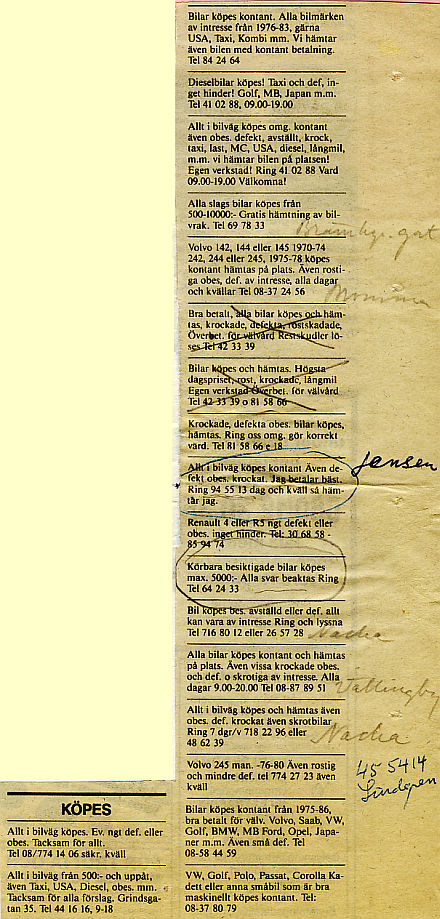 Bilar köpes kontant. Alla bilmärken
av intresse från 1976-83, gärna
USA, Taxi, Kombi mm. Vi hämtar
även bilen med kontant betalning.
Tel 84 24 64
Dieselbilar köpes! Taxi och def, in-
get hinder! Golf, MB, Japan m.m.
Tel 41 02 88, 09.00-19.00
Allt i bilväg köpes omg. kontant
även obes. defekt, avställt, krock,
taxi, last, MC, USA, diesel, långmil,
m.m. vi hämtar bilen på platsen!
Egen verkstad! Ring 41 02 88 Vard
09.00-19.00 Välkomna!
Alla slags bilar köpes från
500-10000:- Gratis hämtning av bil-
vrak. Tel 69 78 33
Volvo 142, 144 eller 145 1970-74
242, 244 eller 245, 1975-78 köpes
kontant hämtas på plats. Även rosti-
ga obes, def. av intresse, alla dagar
och kvällar Tel 08-37 24 56
Bra betalt, alla bilar köpes och häm-
tas, krockade, defekta, rostskadade,
Överbet. för välvård Restskudler lö-
ses Tel 42 33 39
Bilar köpes och hämtas. Högsta
dagspriset, rost, krockade, långmil
Egen verkstad Överbet. för välvård
Tel 42 33 39 o 81 58 66
Krockade, defekta obes. bilar köpes,
hämtas. Ring oss omg. gör korrekt
värd. Tel 81 58 66 e 18
Jensen
Allt i bilväg köpes kontant Även de-
fekt obes. krockat. Jag betalar bäst.
Ring 94 55 13 dag och kväll så häm-
tar jag.
Renault 4 eller R5 ngt defekt eller
obes. inget hinder. Tel: 30 68 58 -
85 94 74
Körbara besiktigade bilar köpes
max. 5000:- Alla svar beaktas Ring
Tel 64 24 33
Bil köpes bes. avställd eller def. allt
kan vara av intresse Ring och lyssna
Tel 716 80 12 eller 26 57 28
Nacka
Alla bilar köpes kontant och hämtas
på plats. Även vissa krockade obes.
och def. o skrotiga av intresse. Alla
dagar 9.00-20.00 Tel 08-87 89 51
Vällingby
Allt i bilväg köpes och hämtas även
obes. def. krockat även skrotbilar
Ring 7 dgr/v 718 22 96 eller
48 62 39
Nacka
Volvo 245 man. -76-80 Även rostig
och mindre def. tel 774 27 23 även
kväll
45 5414
Lindgren
KÖPES
Allt i bilväg köpes. Ev. ngt def. eller
obes. Tacksam för allt.
Tel 08/774 14 06 säkr. kväll
Allt i bilväg från 500:- och uppåt,
även Taxi, USA, Diesel, obes. mm.
Tacksam för alla förslag. Grindsga-
tan 35. Tel 44 16 16, 9-18
Bilar köpes kontant från 1975-86,
bra betalt för välv. Volvo, Saab, VW,
Golf, BMW, MB Ford, Opel, Japa-
ner m.m. Även små def. Tel
08-58 44 59
VW, Golf, Polo, Passat, Corolla Ka-
dett eller anna småbil som är bra
maskinellt köpes kontant. Tel:
08-37 80 79